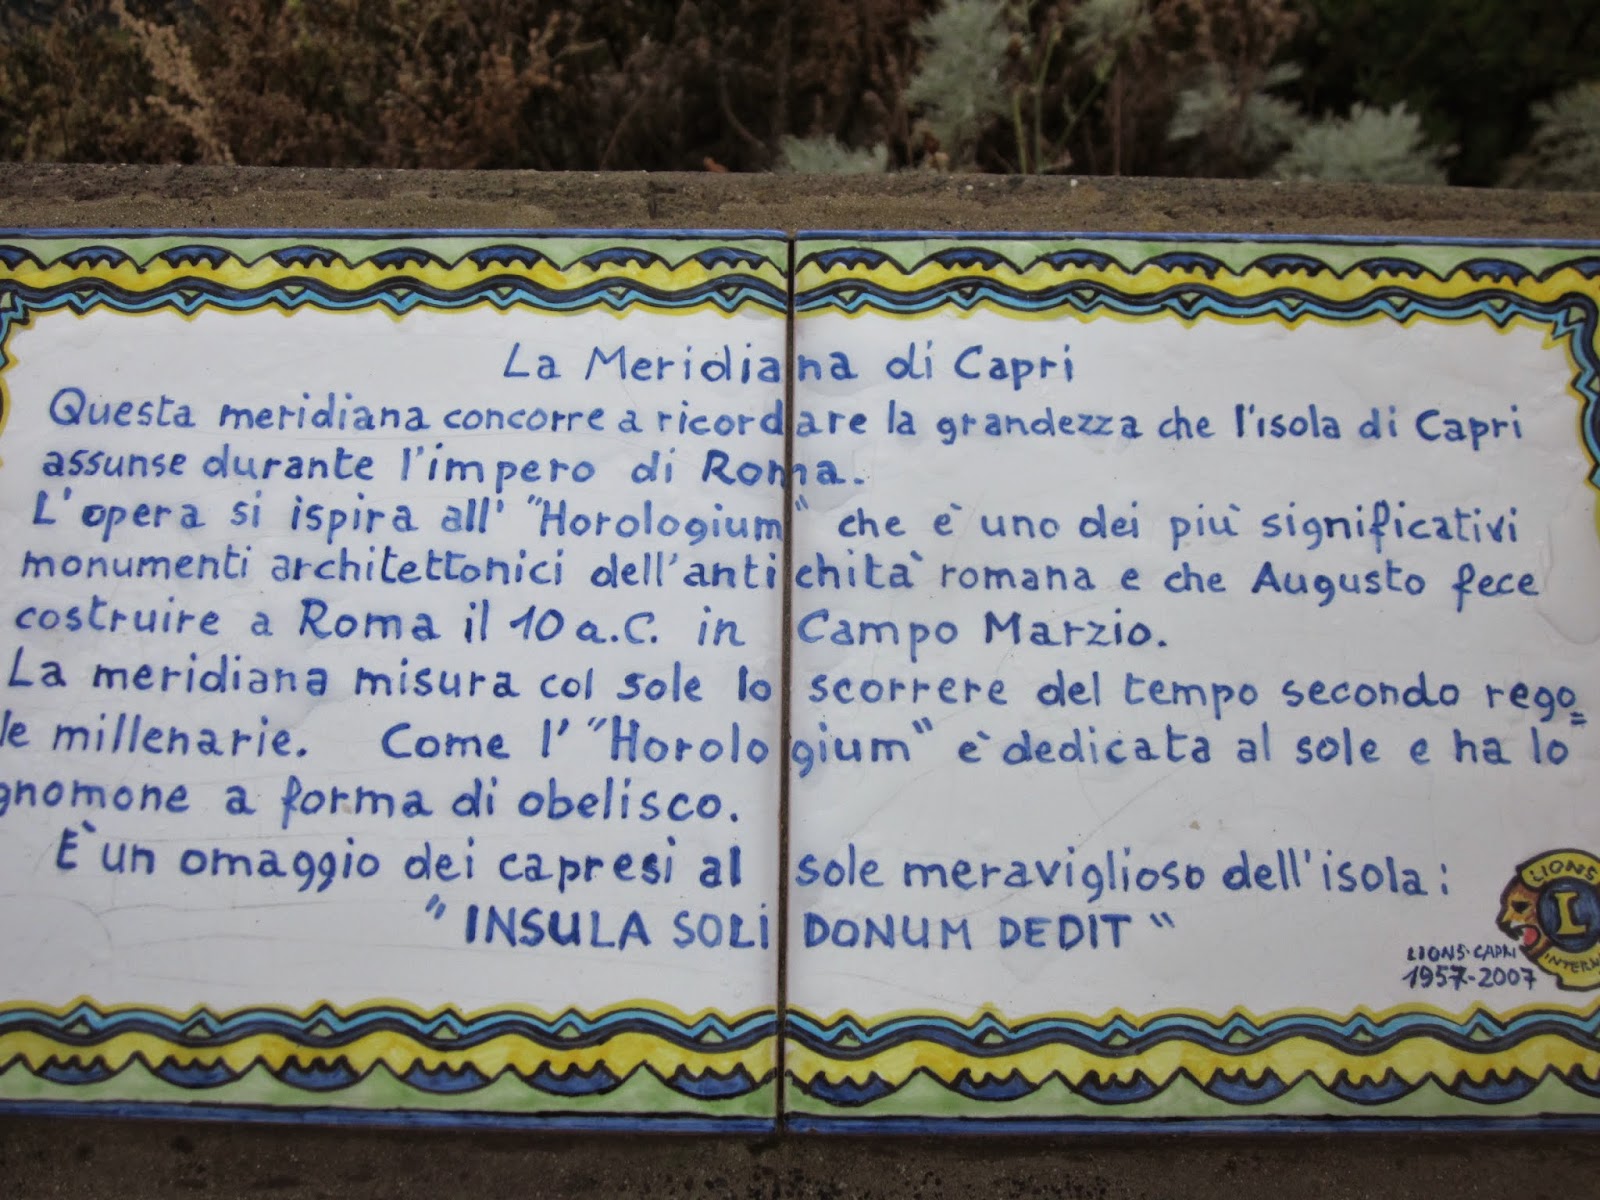 La Meridiana di Capri
Questa meridiana concorre a ricordare la grandezza che l'isola di Capri
assunse durante l'impero di Roma.
L'opera si ispira all' "Horologium" che è uno dei più significativi
monumenti architettonici dell'antichità romana e che Augusto fece
costruire a Roma il 10 a.C. in Campo Marzio.
La meridiana misura col sole lo scorrere del tempo secondo rego=
le millenarie. Come l' "Horologium" è dedicata al sole e ha lo
gnomone a forma di obelisco.
È un omaggio dei capresi al sole meraviglioso dell'isola:
"INSULA SOLI DONUM DEDIT"
LIONS
L
INTERN
LIONS·CAPRI
1957-2007